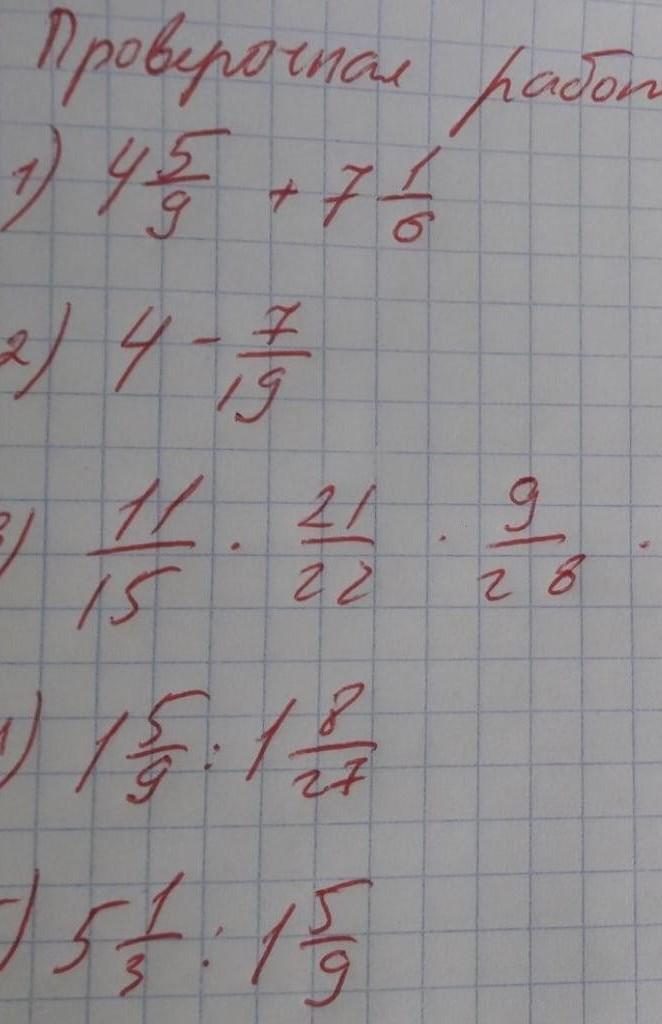 Проверочная работ
1) 4 5/9 + 7 1/6
2) 4 - 7/19
3) 11/15 · 21/22 · 9/28 ·
4) 1 5/9 : 1 8/27
5) 5 1/3 : 1 5/9